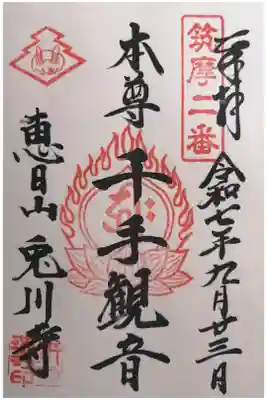 奉拝
筑摩二番
令和七年九月廿三日
本尊 千手観音
恵日山 兎川寺